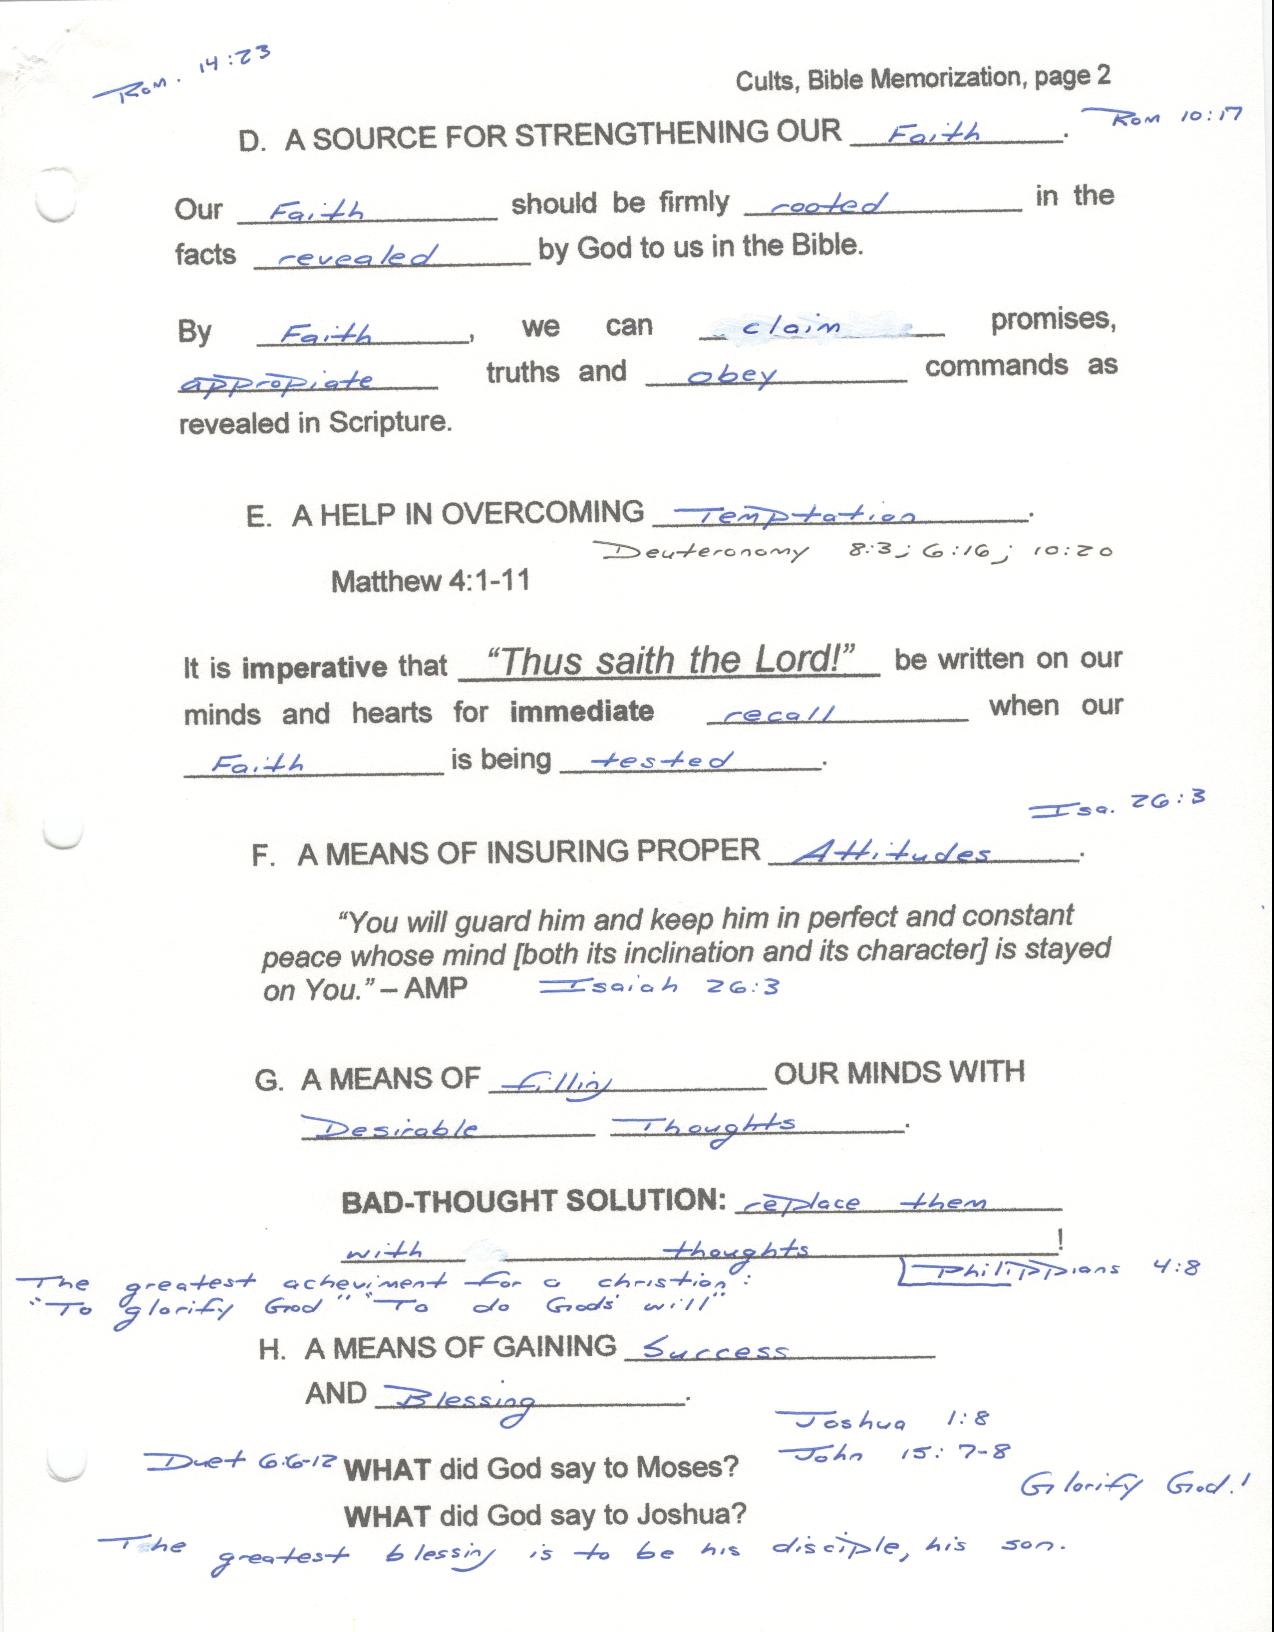 Rom. 14:23
Cults, Bible Memorization, page 2
D. A SOURCE FOR STRENGTHENING OUR Faith.
Rom 10:17
Our Faith should be firmly rooted in the
facts revealed by God to us in the Bible.
By Faith, we can claim promises,
appropiate truths and obey commands as
revealed in Scripture.
E. A HELP IN OVERCOMING Temptation.
Deuteronomy 8:3; 6:16; 10:20
Matthew 4:1-11
It is imperative that "Thus saith the Lord!" be written on our
minds and hearts for immediate recall when our
Faith is being tested.
Isa. 26:3
F. A MEANS OF INSURING PROPER Attitudes.
"You will guard him and keep him in perfect and constant
peace whose mind [both its inclination and its character] is stayed
on You." – AMP Isaiah 26:3
G. A MEANS OF filling OUR MINDS WITH
Desirable Thoughts.
BAD-THOUGHT SOLUTION: replace them
with thoughts!
Philippians 4:8
The greatest acheviment for a christian:
"To glorify God" "To do Gods' will"
H. A MEANS OF GAINING Success
AND Blessing.
Joshua 1:8
John 15:7-8
Duet 6:6-12 WHAT did God say to Moses?
Glorify God!
WHAT did God say to Joshua?
The greatest blessing is to be his disciple, his son.